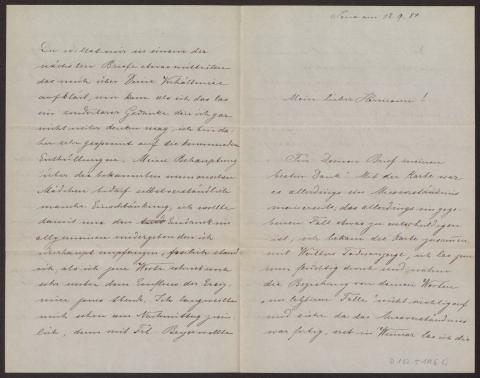 Jena am 12.9.81
Mein lieber Hermann!
Für Deinen Brief meinen
besten Dank! Mit der Karte war
es allerdings ein Missverständnis
meinerseits, das allerdings im gege-
benen Fall etwas zu entschuldigen
ist, ich bekam die Karte zusammen
mit Todesanzeige, ich las zum
und nahm
die Beziehung von deinen Worten
„im letzteren Falle“ nicht richtig auf
und siehe da das Missverständnis
war fertig, erst in Weimar las ich die
Du willst mir in einem der
nächsten Briefe etwas mitteilen
das mich über Deine Verhältnisse
aufklärt, mir kam als ich das las
ein sonderbarer Gedanke den ich gar
nicht weiter denken mag, ich bin da-
her sehr gespannt auf die kommenden
Enthüllungen. Meine Behauptung
über die bekannten
Mädchen bedarf selbstverständlich
mancher Einschränkung, ich wollte
damit nur den Eindruck im
allgemeinen wiedergeben den ich
überhaupt empfangen, freilich stand
ich, als ich jene Worte schrieb noch
sehr unter dem Einfluss der Ereig-
nisse jenes Abends. Ich langweilte
mich schon am Nachmittag ziem-
lich, denn mit Frl. Beyer wollte